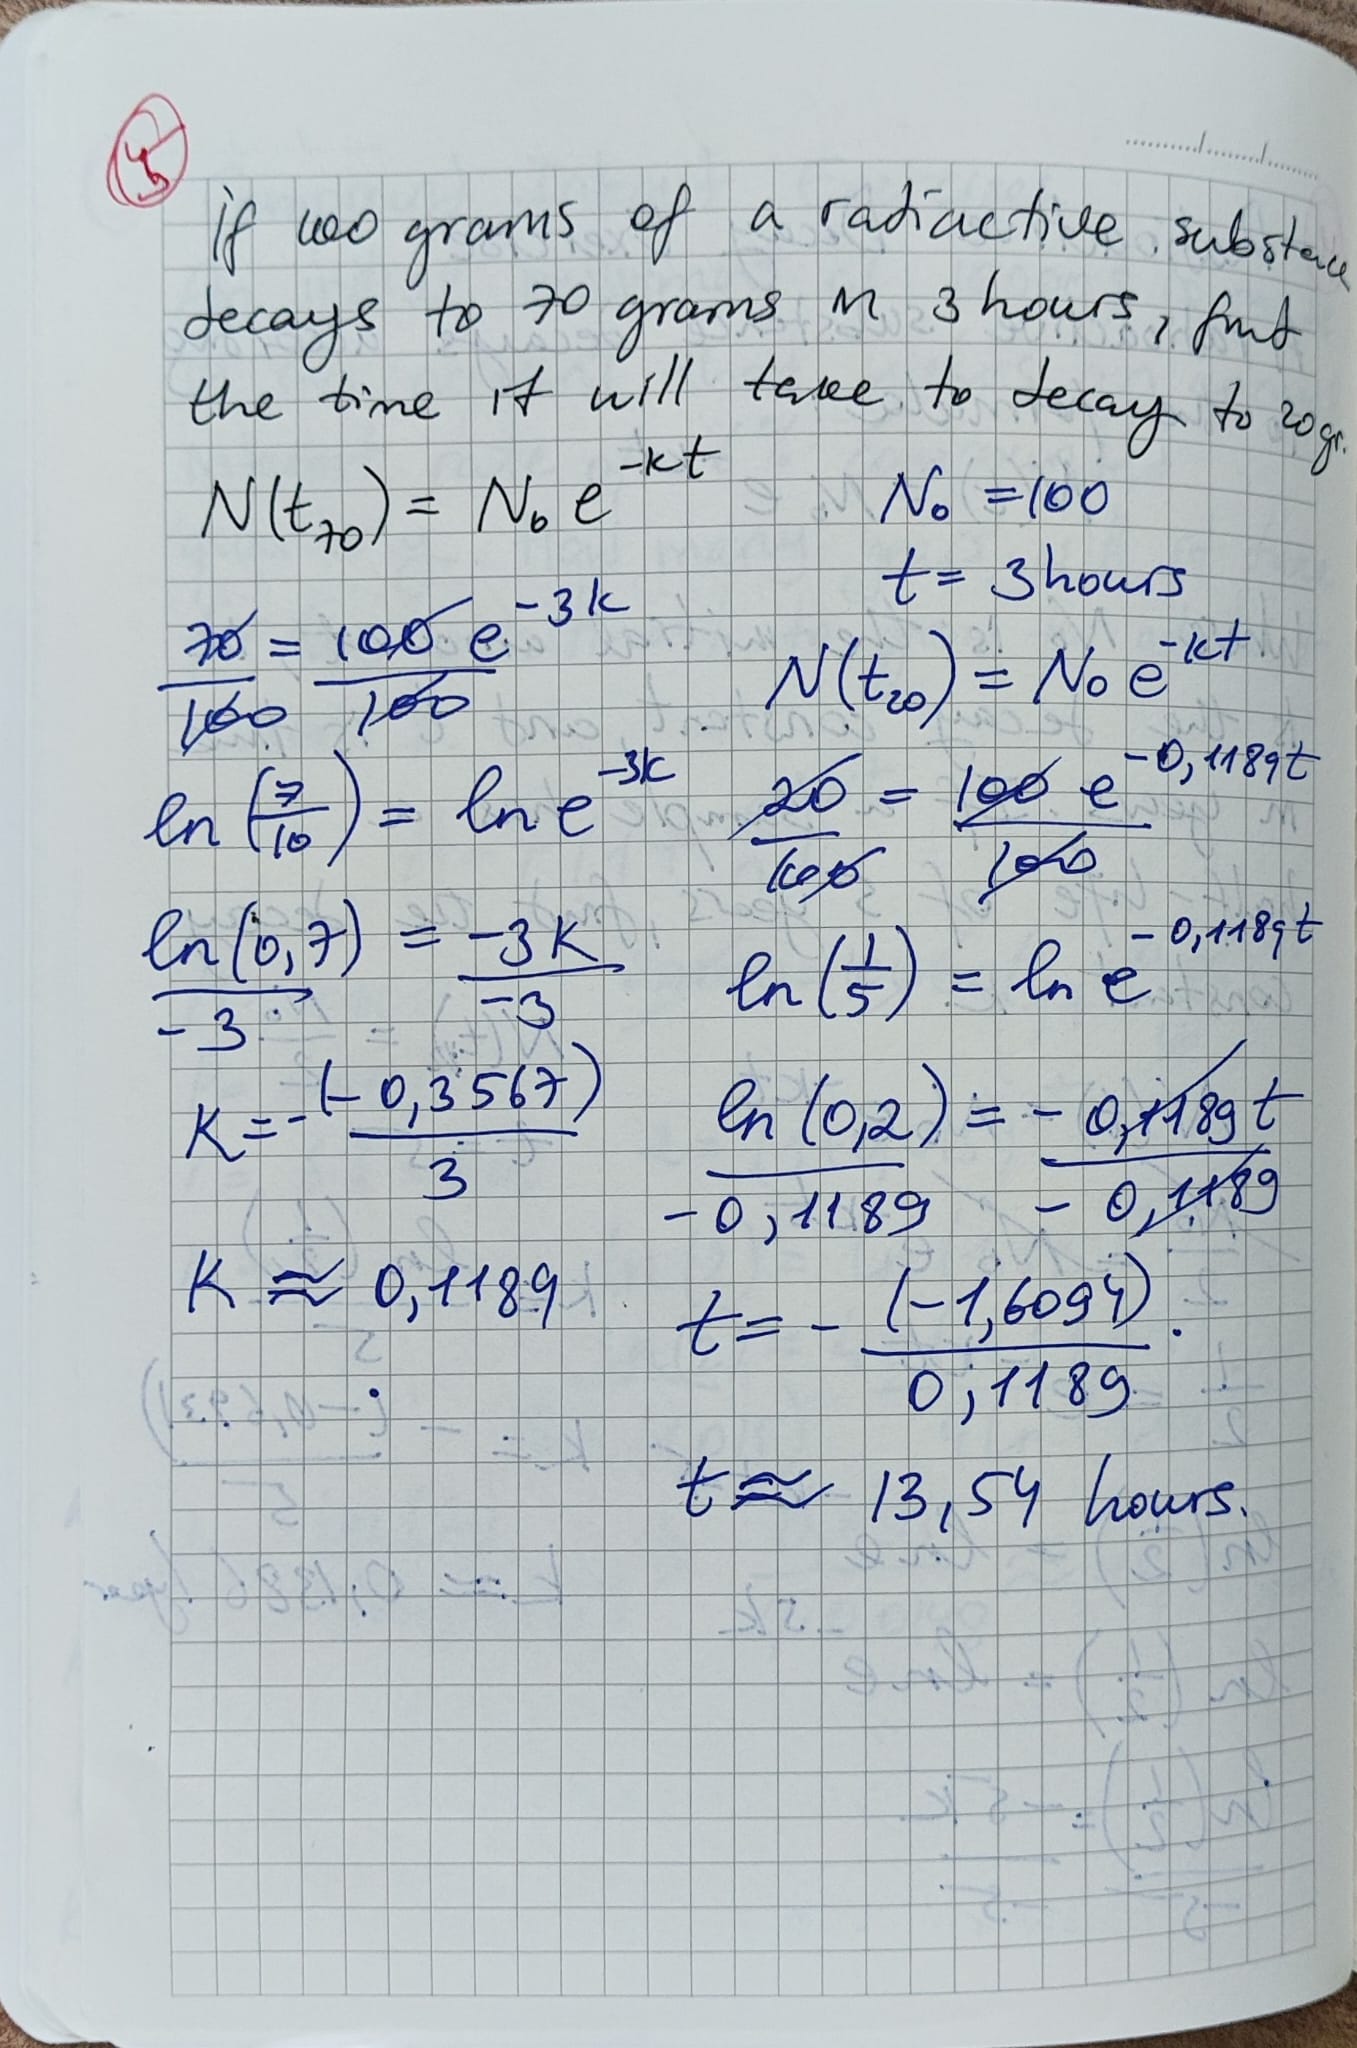 45
if 100 grams of a radiactive substance
decays to 70 grams in 3 hours, find
the time it will take to decay to 20 gr.
N(t₇₀) = N₀ e^(-kt)
70/100 = 100 e^(-3k)/100
ln(7/10) = ln e^(-3k)
ln(0,7)/-3 = -3k/-3
K = -(-0,3567)/3
K ≈ 0,1189
N₀ = 100
t = 3 hours
N(t₂₀) = N₀ e^(-kt)
20/100 = 100 e^(-0,1189t)/100
ln(1/5) = ln e^(-0,1189t)
ln(0,2)/-0,1189 = -0,1189t/-0,1189
t = -(-1,6094)/0,1189.
t ≈ 13,54 hours.